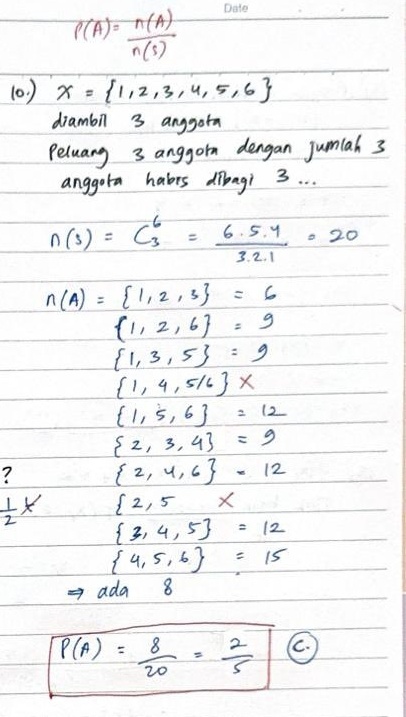 Date
P(A) = n(A)/n(s)
10.) X = {1,2,3,4,5,6}
diambil 3 anggota
Peluang 3 anggota dengan jumlah 3
anggota habis dibagi 3 ...
n(s) = C⁶₃ = 6.5.4/3.2.1 = 20
n(A) = {1,2,3} = 6
{1,2,6} = 9
{1,3,5} = 9
{1,4,5/6} ×
{1,5,6} = 12
{2,3,4} = 9
? {2,4,6} = 12
1/2 {2,5 ×
{3,4,5} = 12
{4,5,6} = 15
⇒ ada 8
P(A) = 8/20 = 2/5 C.